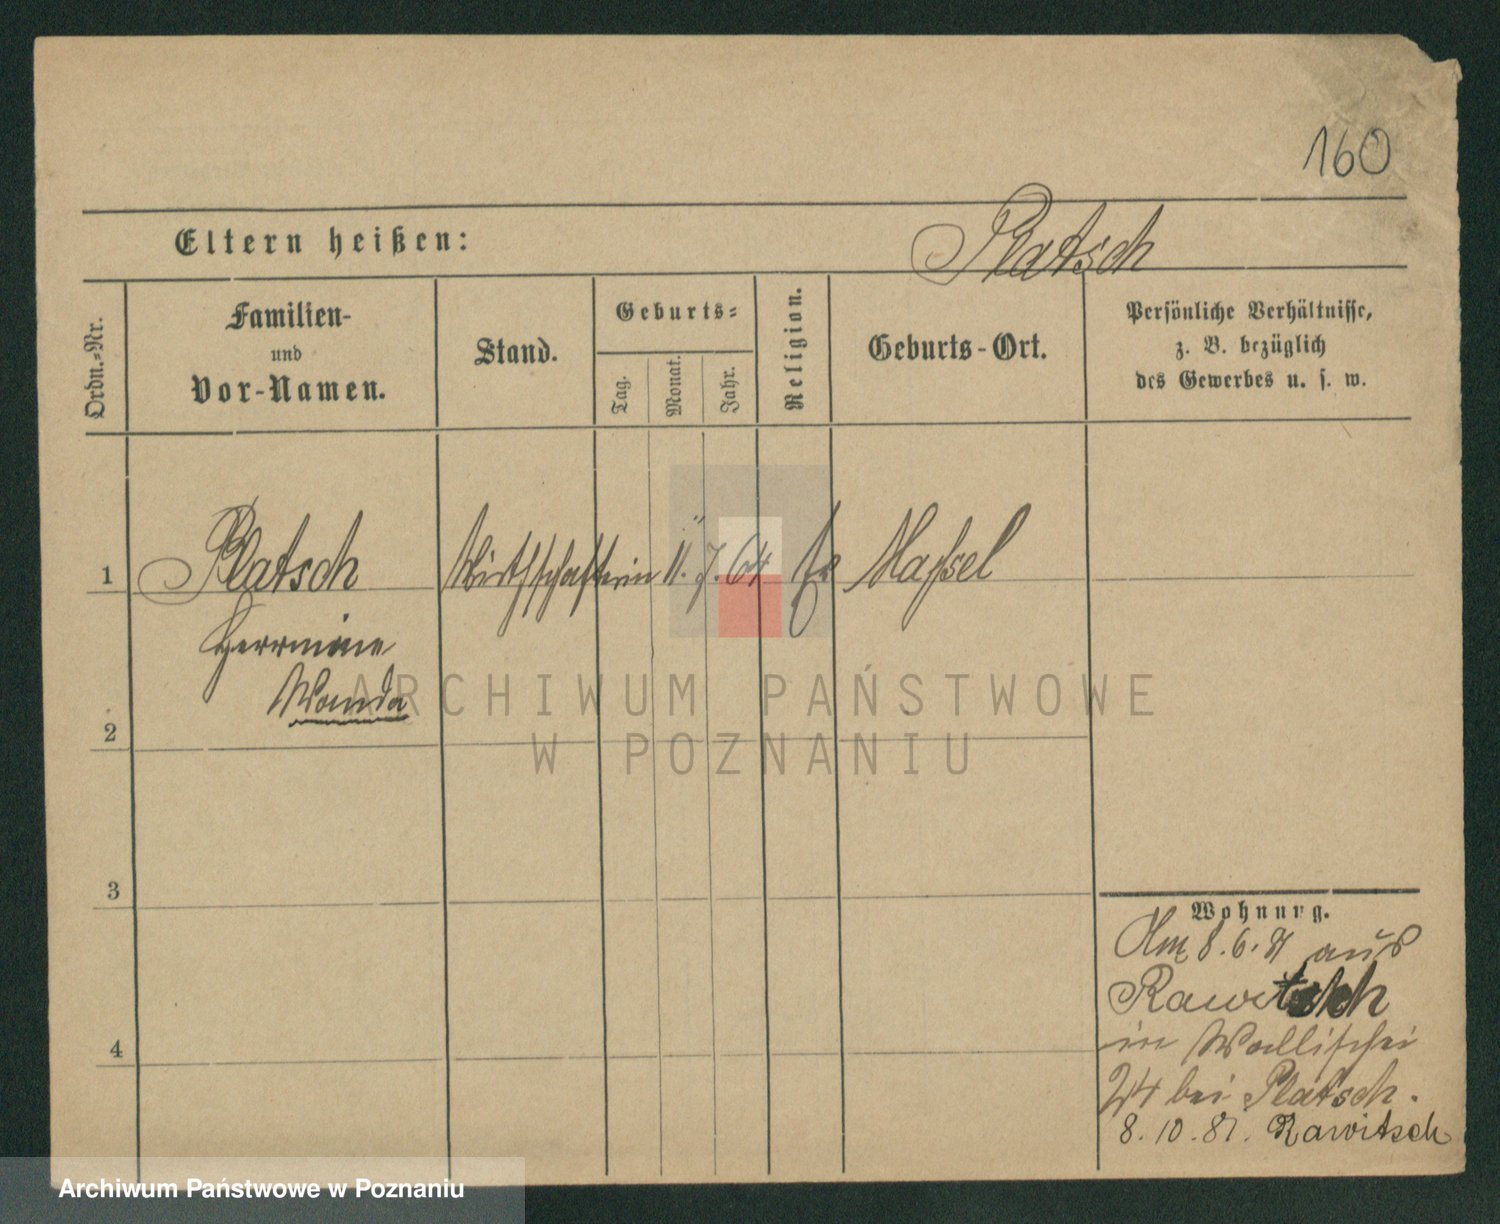 160
Eltern heißen: Platsch
Ordn.-Nr.
Familien-
und
Vor-Namen.
Stand.
Geburts-
Tag.
Monat.
Jahr.
Religion.
Geburts-Ort.
Persönliche Verhältnisse,
z. B. bezüglich
des Gewerbes u. s. w.
1 Platsch Wirthschafterin 11. 7. 64 Massel
Herrmine
Wanda
2
3
4
Wohnung.
8. 6. 81 aus
Rawitsch
in Wallischei
24 bei Platsch.
8. 10. 81. Rawitsch
ARCHIWUM PAŃSTWOWE
W POZNANIU
Archiwum Państwowe w Poznaniu